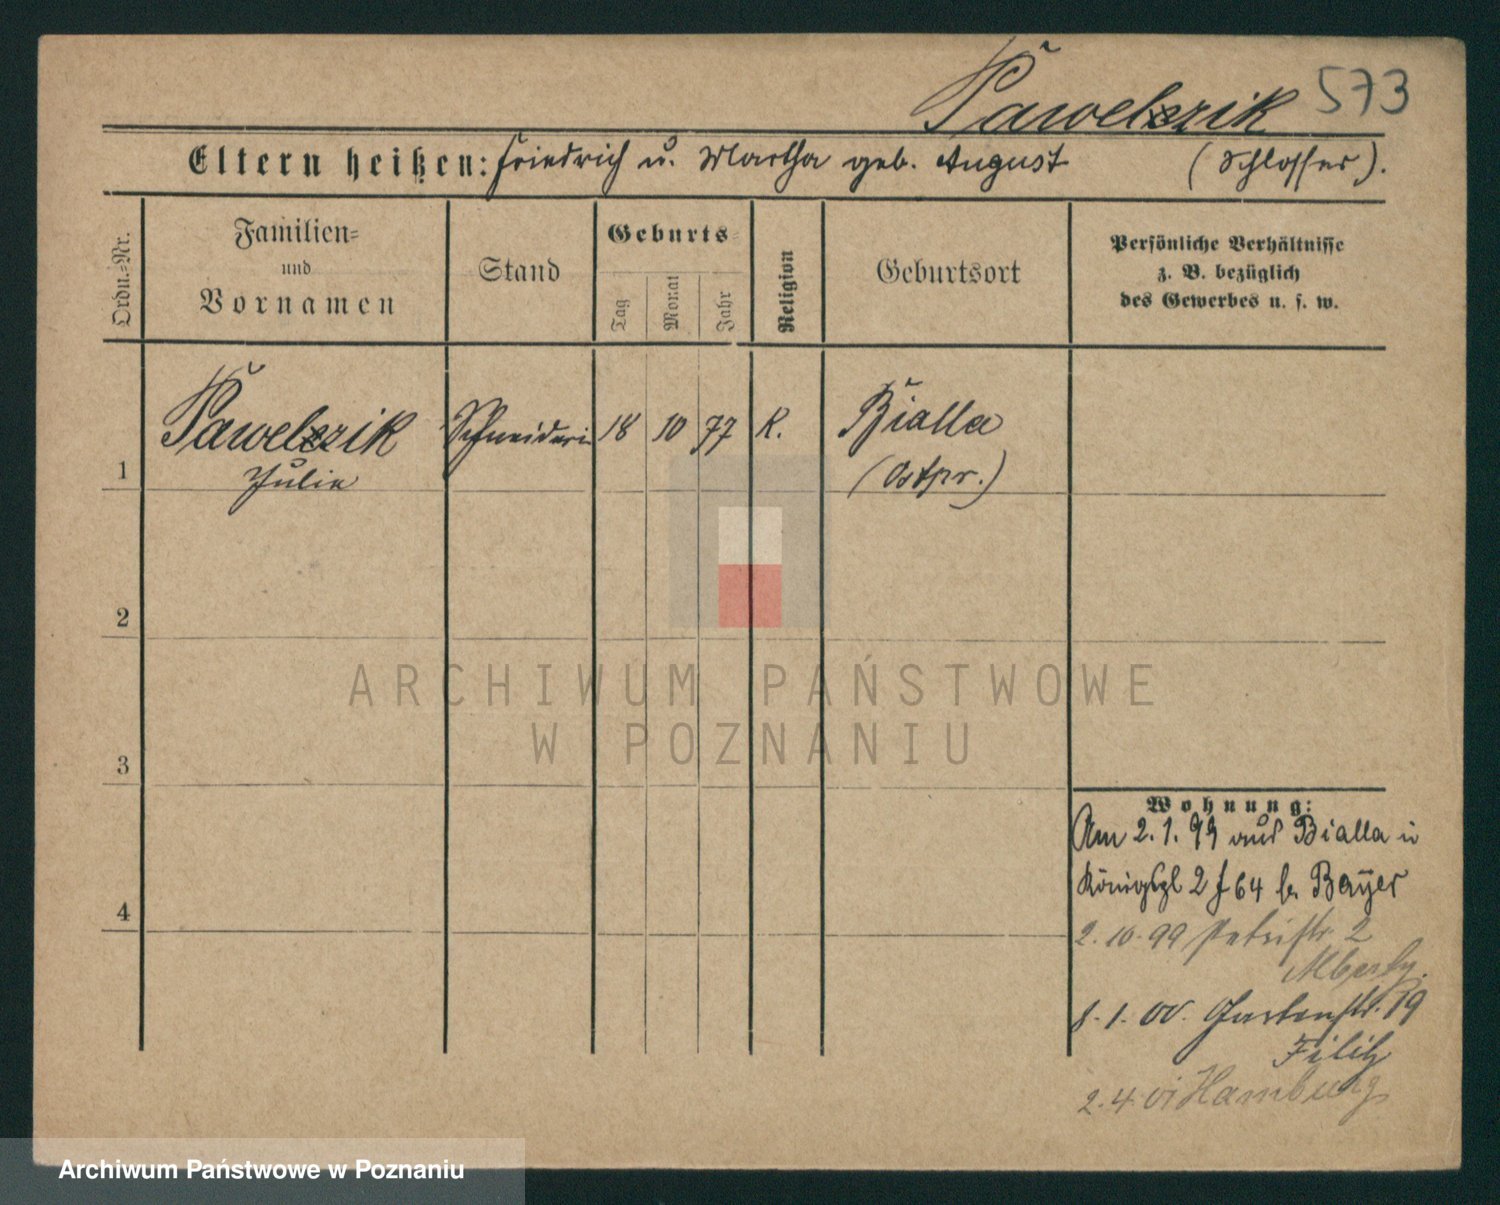 Pawelzik 573
Eltern heißen: Friedrich u. Martha geb. August (Schlosser).
Ordn.-Nr.
Familien-
und
Vornamen
Stand
Geburts-
Tag
Monat
Jahr
Religion
Geburtsort
Persönliche Verhältnisse
z. B. bezüglich
des Gewerbes u. s. w.
1 Pawelzik Schneiderin 18 10 77 K. Bialla
Julie (Ostpr.)
2
3
4
Wohnung:
Am 2. 1. 99 aus Bialla in
Königspl 2 f 64 b. Bayer
2. 10. 99 Petristr. 2
8. 1. 00. Gartenstr. 19
2. 4. 01 Hamburg
ARCHIWUM PAŃSTWOWE
W POZNANIU
Archiwum Państwowe w Poznaniu